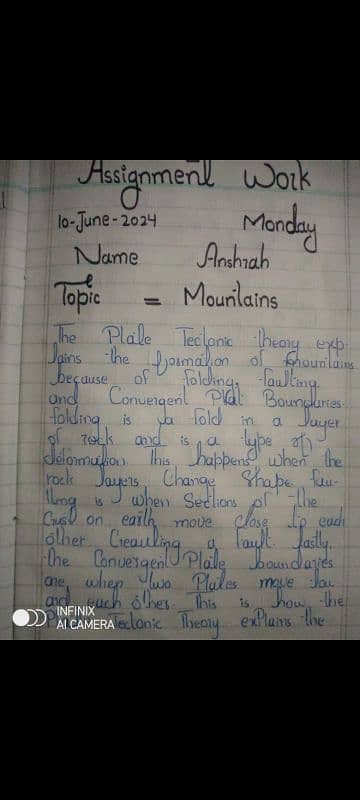 Assignment Work
10-June-2024 Monday
Name Anshrah
Topic = Mountains
The Plate Tectonic theory exp-
lains the formation of mountains
because of folding, faulting
and Convergent Plat Boundaries.
folding is a fold in a layer
of rock and is a type of
deformation. This happens when the
rock layers Change Shape fau-
lting is when Sections of the
Crust on earth move close to each
other. Creauling a fault. lastly,
the Convergent Plate boundaries
are when two Plates move
and each other. This is how the
Plate Tectonic Theory explains the
INFINIX
AI CAMERA